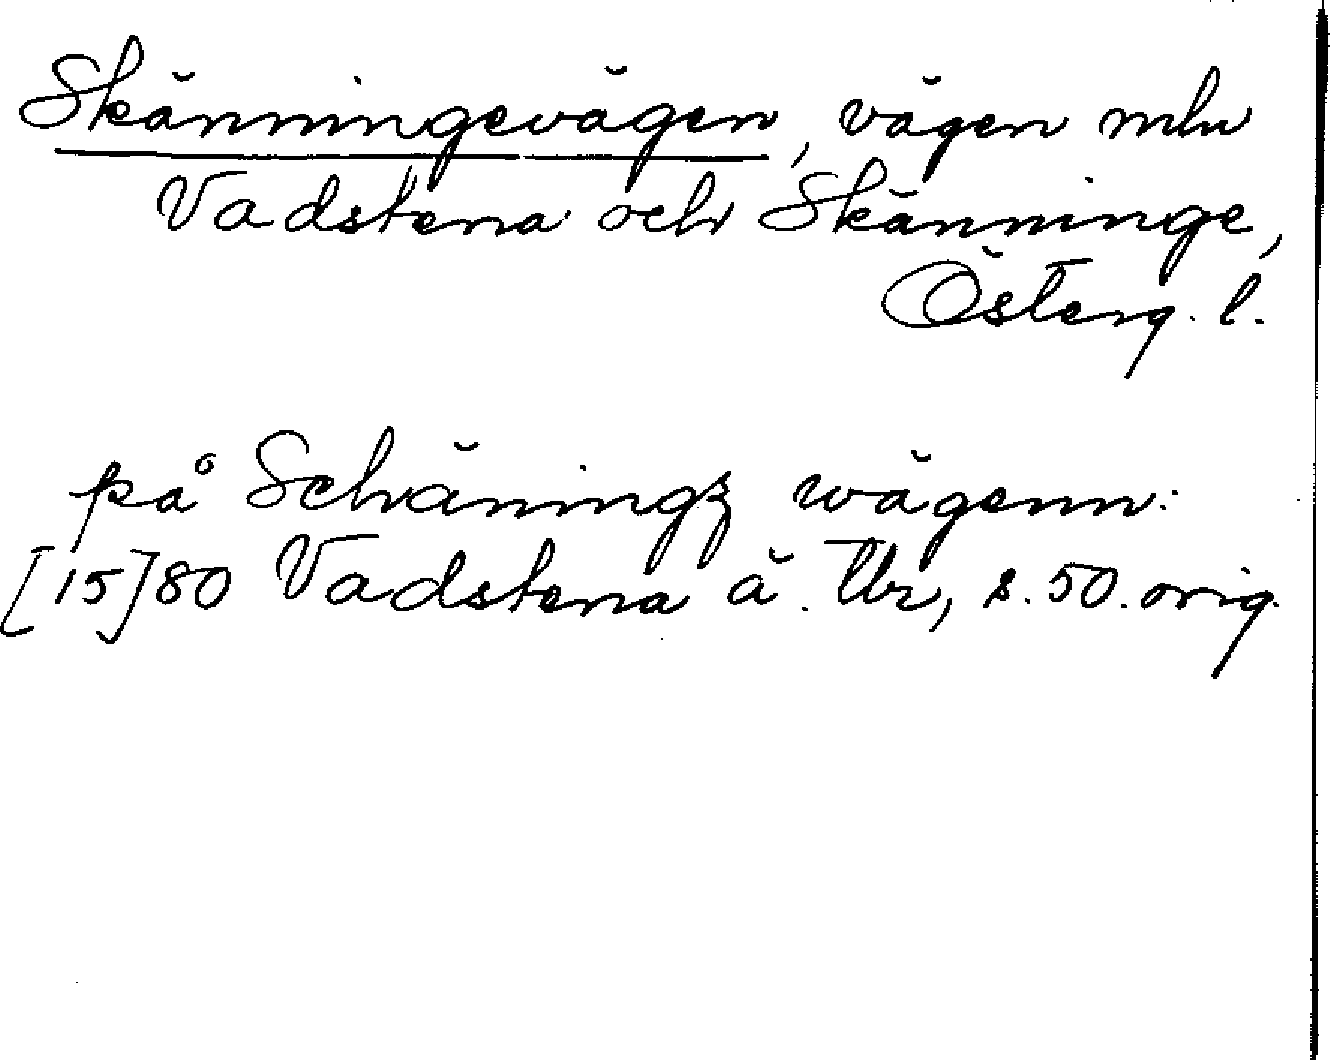 Skänningevägen, vägen mln
Vadstena och Skänninge,
Österg. l.
på Schäningz wägenn:
[15]80 Vadstena ä. Tbr, s. 50. orig.